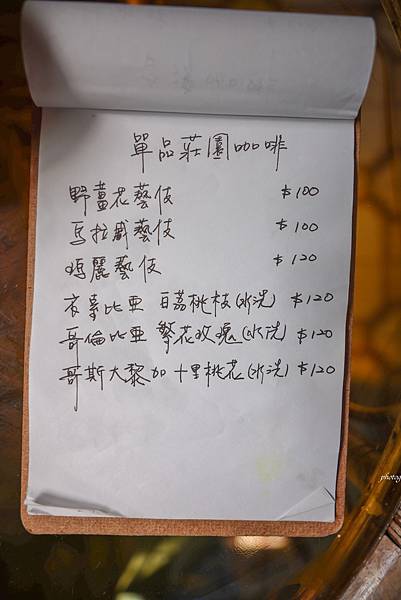 單品莊園咖啡
野薑花藝伎 $100
馬拉威藝伎 $100
瑪麗藝伎 $120
衣索比亞 百荔桃枝(水洗) $120
哥倫比亞 繁花玫瑰(水洗) $120
哥斯大黎加 十里桃花(水洗) $120
photog